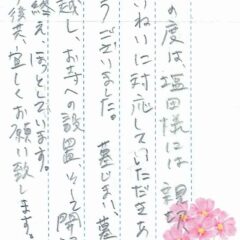 の度は、塩田様には 親切
いねいに対応していただきあ
うございました。 墓じまい、墓
越し、お寺への設置、そして開
終え、ほっとしています。
後共、宜しくお願い致します。